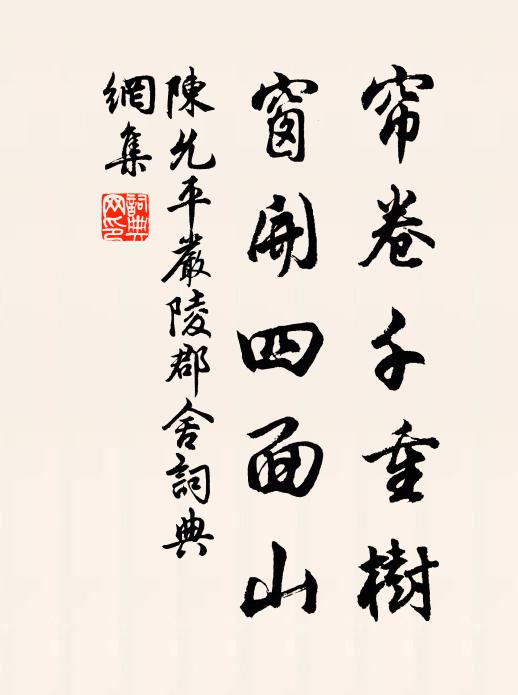 帘卷千重樹
窗開四面山
陳允平嚴陵郡舍詞典
網集
詞典网印